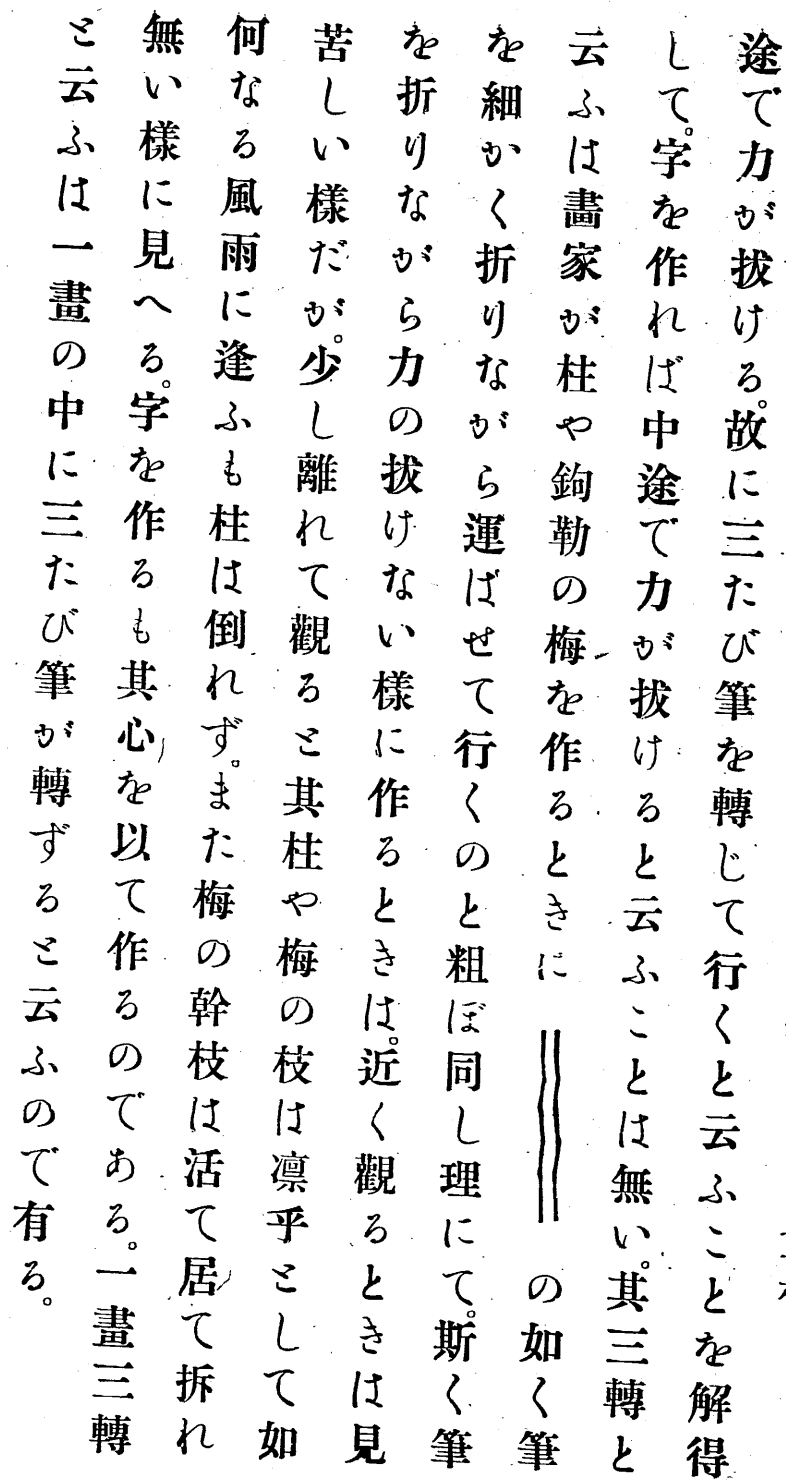 途で力が拔ける。故に三たび筆を轉じて行くと云ふことを解得
して。字を作れば中途で力が拔けると云ふことは無い。其三轉と
云ふは畵家が柱や鉤勒の梅を作るときに の如く筆
を細かく折りながら運ばせて行くのと粗ぼ同し理にて。斯く筆
を折りながら力の拔けない樣に作るときは。近く觀るときは見
苦しい樣だが。少し離れて觀ると其柱や梅の枝は凛乎として如
何なる風雨に逢ふも柱は倒れず。また梅の幹枝は活て居て拆れ
無い樣に見へる。字を作るも其心を以て作るのである。一畫三轉
と云ふは一畫の中に三たび筆が轉ずると云ふので有る。